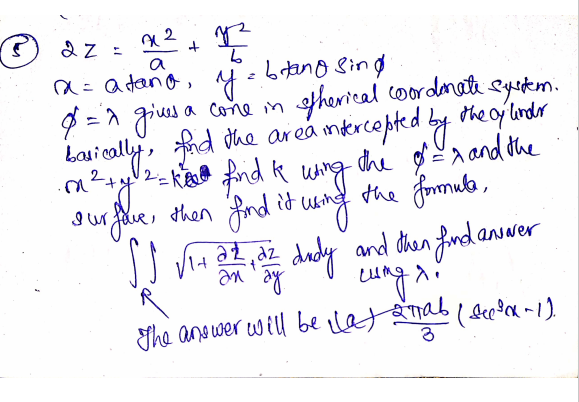 5 2z = x²/a + y²/b
x = a tanθ, y = b tanθ sinφ
φ = λ gives a cone in spherical coordinate system.
basically, find the area intercepted by the cylindr
x² + y² = k² find k using the φ = λ and the
surface, then find it using the formula,
∫∫ √1+ ∂z/∂x + ∂z/∂y dxdy and then find answer
R using λ.
The answer will be (a) 2πab/3 (sec³x - 1).